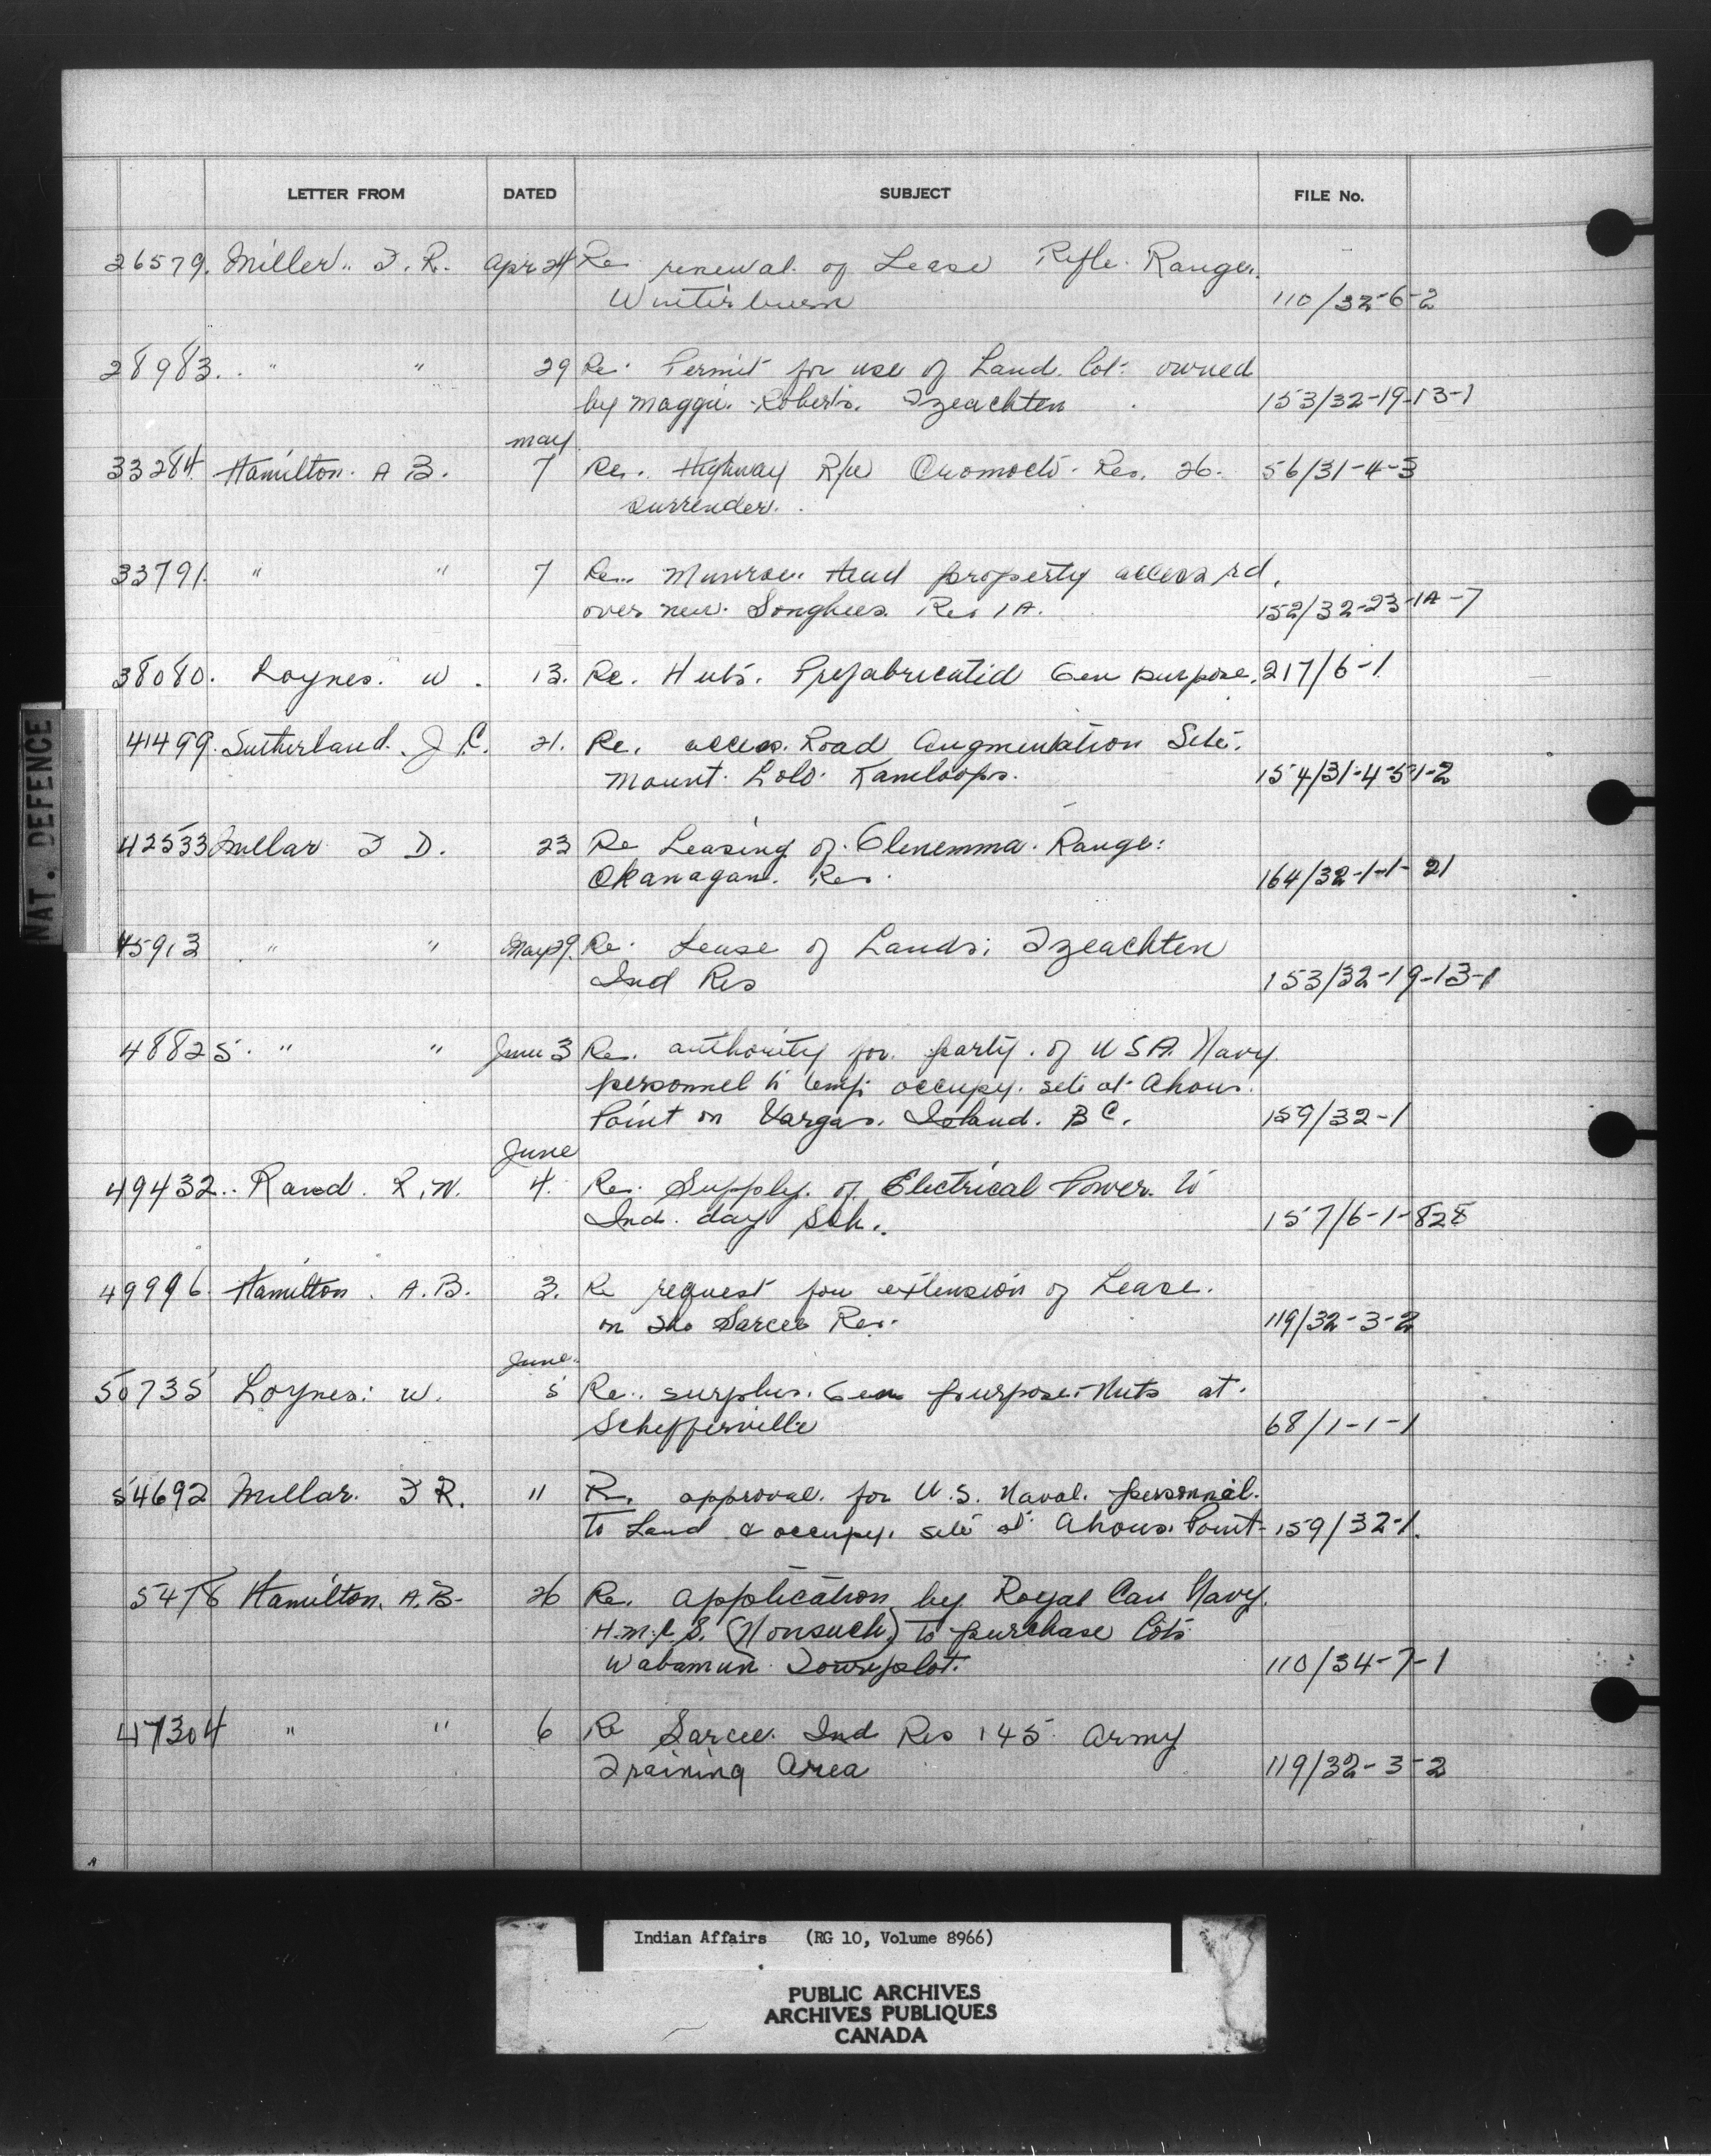 LETTER FROM DATED SUBJECT FILE No.
26579. Miller.. F. R. Apr 24 Re renewal of Lease Rifle Range.
Winterburn 110/32-6-2
28983. " " 29 Re. Permit for use of Land. Lot. owned
by Maggie. Roberts. Tzeachten 153/32-19-13-1
May
33284. Hamilton. A B. 7 Re. Highway R/W Oromocto. Res. 26. 56/31-4-3
surrender.
33791. " " 7 Re.. Munroe. Head property access rd.
over new. Songhees. Res 1A. 152/32-23-1A-7
38080. Loynes. W. 13. Re. Huts. Prefabricated Gen purpose. 217/6-1
41499. Sutherland. J.C. 21. Re. access. Road Augmentation Site.
Mount. Lolo. Kamloops. 154/31-4-5-1-2
NAT. DEFENCE
42533 Millar F D. 23 Re Leasing of. Glenemma. Range:
Okanagan. Res. 164/32-1-1-21
45913 " " May 29. Re. Lease of Lands; Tzeachten
Ind Res 153/32-19-13-1
48825. " " June 3 Re. authority for. party. of U S A. Navy
personnel to temp. occupy. site at Ahous.
Point on Vargas. Island. B C. 159/32-1
June
49432.. Rand. R. W. 4. Re. Supply. of Electrical Power. to
Ind. day Sch. 157/6-1-828
49996. Hamilton. A.B. 3. Re request for extension of Lease.
on Sarcee Res. 119/32-3-2
June.
50735 Loynes: W. 5 Re.. surplus. Gen purpose. Huts at.
Schefferville 68/1-1-1
54692 Millar. F R. 11 R. approval. for U.S. Naval. personnel.
to Land & occupy. site at Ahous. Point 159/32-1.
5478 Hamilton. A.B. 26 Re. application by Royal Can Navy.
H.M.C.S. (Nonsuch) to purchase Lots
Wabamun Townplot. 110/34-7-1
47304 " " 6 Re Sarcee. Ind Res 145 Army
Training Area 119/32-3-2
Indian Affairs (RG 10, Volume 8966)
PUBLIC ARCHIVES
ARCHIVES PUBLIQUES
CANADA